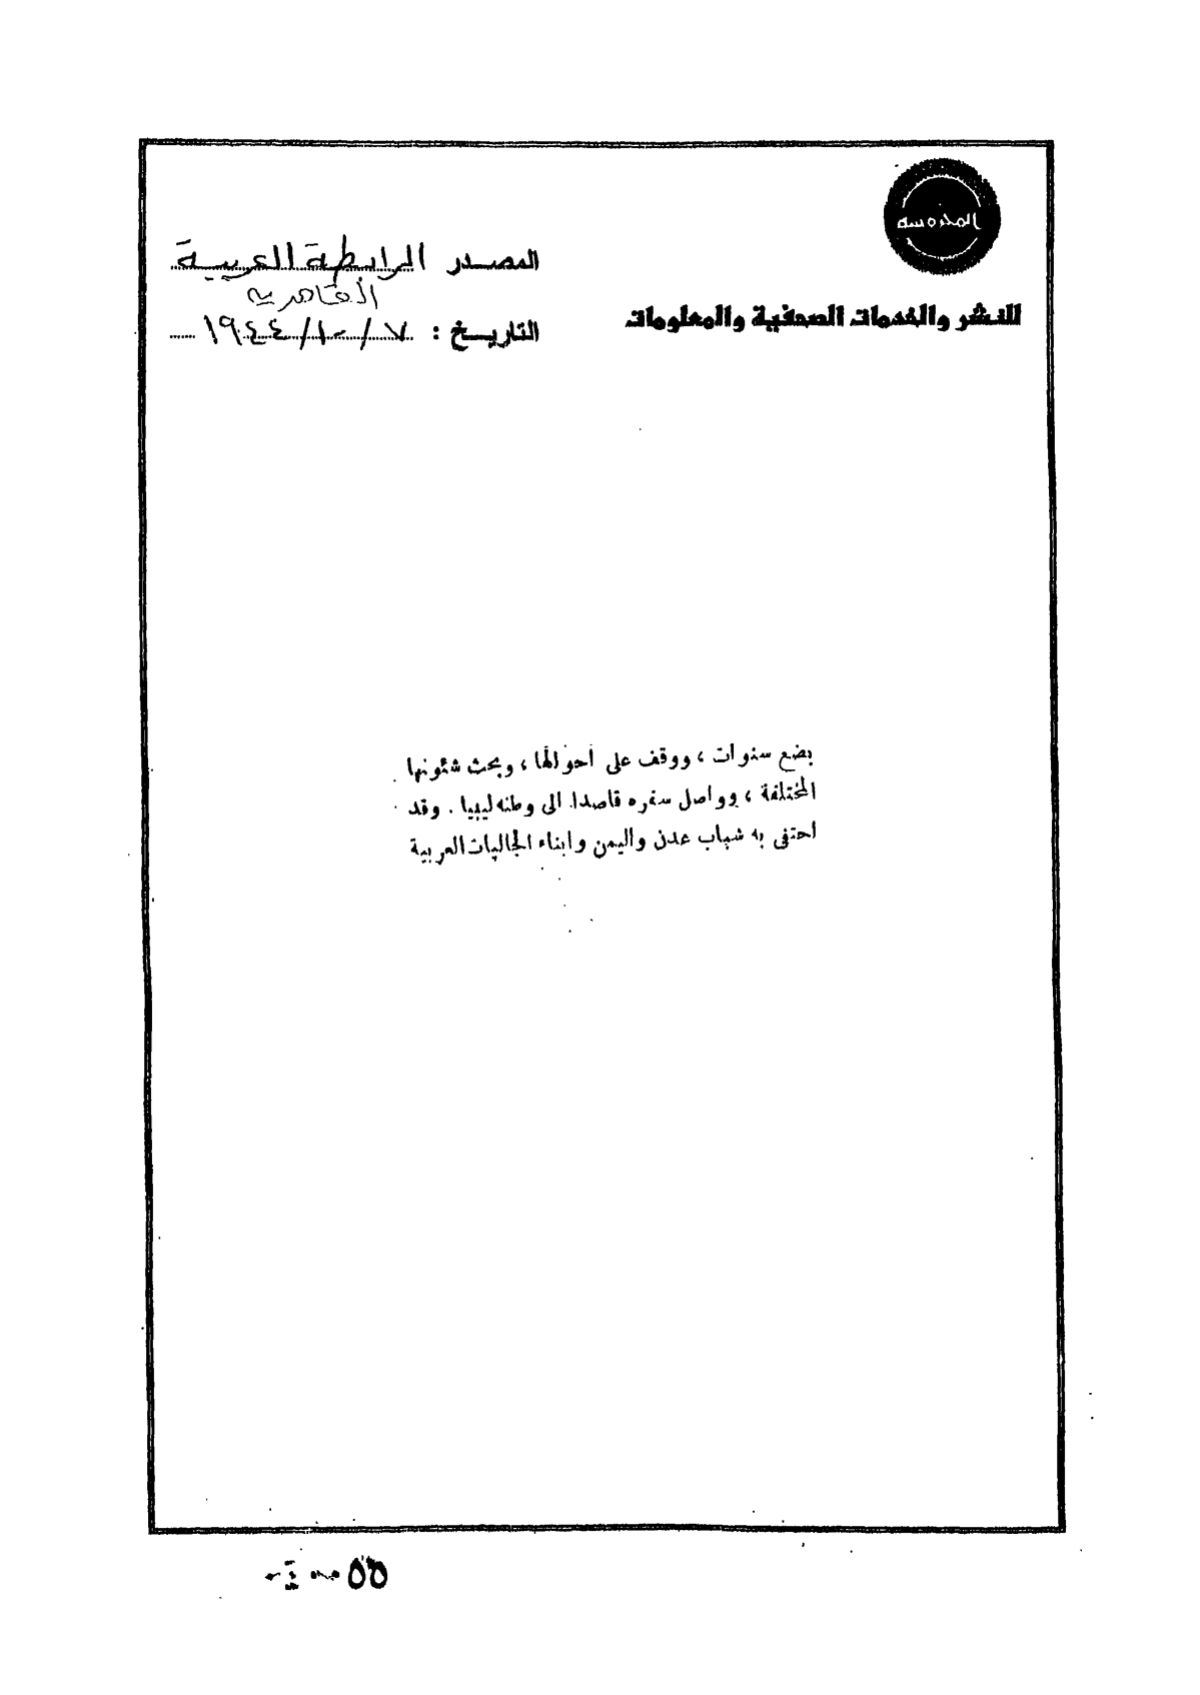 المحروسة
للنشر والخدمات الصحفية والمعلومات
المصدر الرابطة العربية
القاهرية
التاريخ : ٧/١٠/١٩٤٤
بضع سنوات ، ووقف على أحوالها ، وبحث شئونها
المختلفة ، وواصل سفره قاصدا الى وطنه ليبيا . وقد
احتفى به شباب عدن واليمن وابناء الجاليات العربية